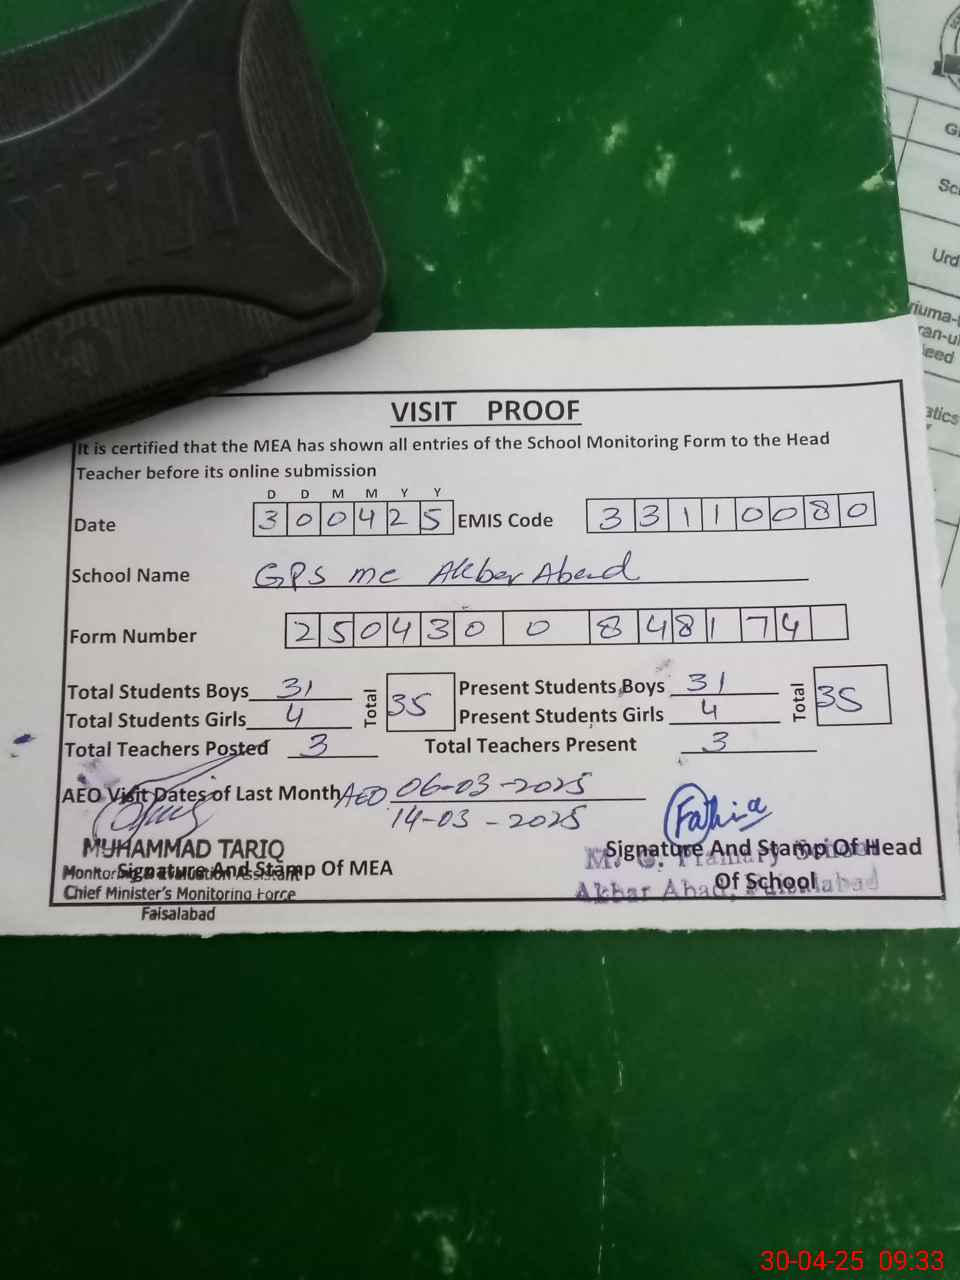 VISIT PROOF
It is certified that the MEA has shown all entries of the School Monitoring Form to the Head
Teacher before its online submission
D D M M Y Y
Date 3 0 0 4 2 5 EMIS Code 3 3 1 1 0 0 8 0
School Name GPS mc Akber Abad
Form Number 2 5 0 4 3 0 0 8 4 8 1 7 4
Total Students Boys 31 Total 35 Present Students Boys 31 Total 35
Total Students Girls 4 Present Students Girls 4
Total Teachers Posted 3 Total Teachers Present 3
AEO Visit Dates of Last Month AEO 06-03-2025
14-03-2025
Fathia
MUHAMMAD TARIQ
Signature And Stamp Of MEA
Monitoring & Evaluation Assistant
Chief Minister's Monitoring Force
Faisalabad
Signature And Stamp Of Head
Of School
M. C. Primary School
Akbar Abad, Faisalabad
Urd
eed
atics
30-04-25 09:33